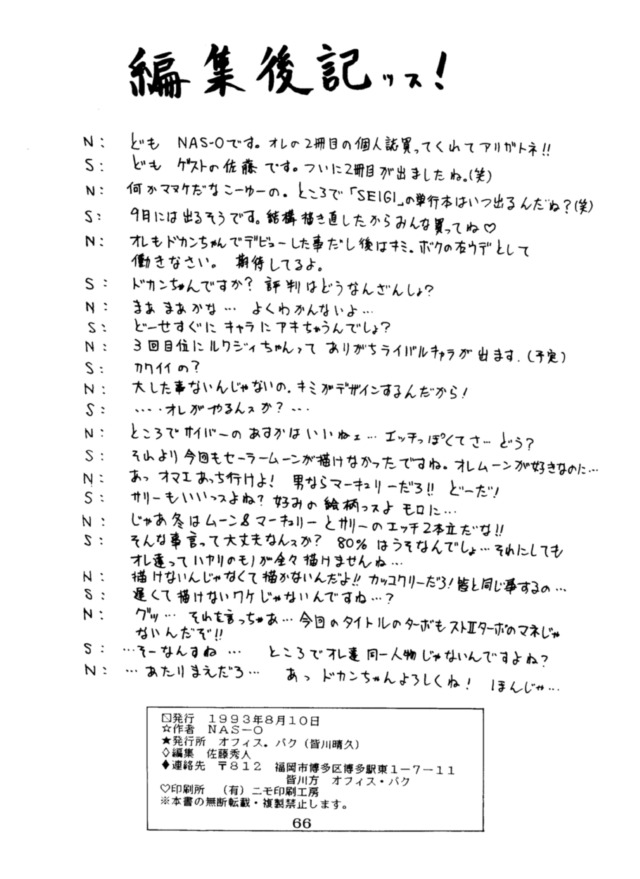 編集後記ッス!
N: ども NAS-Oです。オレの2冊目の個人誌買ってくれてアリガトネ!!
S: ども ゲストの佐藤です。ついに2冊目が出ましたね。(笑)
N: 何かマヌケだなこーゆーの。ところで「SEIGI」の単行本はいつ出るんだね?(笑)
S: 9月には出るそうです。結構描き直したからみんな買ってね♡
N: オレもドカンちゃんでデビューした事だし後はキミ。ボクの右ウデとして
働きなさい。 期待してるよ。
S: ドカンちゃんですか? 評判はどうなんざんしょ?
N: まぁ まぁかな… よくわかんないよ…
S: どーせすぐに キャラに アキちゃうんでしょ?
N: 3回目位に ルクジィちゃんって ありがちライバルキャラが出ます.(予定)
S: カワイイの?
N: 大した事ないんじゃないの.キミがデザインするんだから!
S: ‥‥オレがやるんスか?…
N: ところでサイバーの あすかは いいねェ… エッチっぽくてさ… どう?
S: それより今回もセーラームーンが描けなかったですね。オレムーンが好きなのに…
N: あっ オマエ あっち行けよ! 男ならマーキュリーだろ!! どーだ!
S: サリーもいいっスよね? 好みの絵柄っスよ モロに…
N: じゃあ冬はムーン&マーキュリー とサリーのエッチ2本立だな!!
S: そんな事言って大丈夫なんスか? 80%はうそなんでしょ… それにしても
オレ達ってハヤリのモノが全々描けませんね…
N: 描けないんじゃなくて描かないんだよ!! カッコワリーだろ!皆と同じ事するの…
S: 遅くて描けないワケじゃないんですね…?
N: グッ… それを言っちゃぁ…今回のタイトルのターボもストⅡターボのマネじゃ
ないんだぞ!!
S: …そーなんすね … ところでオレ達 同一人物じゃないんですよね?
N: …あたりまえだろ… あっ ドカンちゃんよろしくね! ほんじゃ…
発行 1993年8月10日
☆作者 NAS-O
★発行所 オフィス.バク(皆川晴久)
◇編集 佐藤秀人
◆連絡先 〒812 福岡市博多区博多駅東1-7-11
皆川方 オフィス・バク
♡印刷所 (有)ニモ印刷工房
※本書の無断転載・複製禁止します。
66